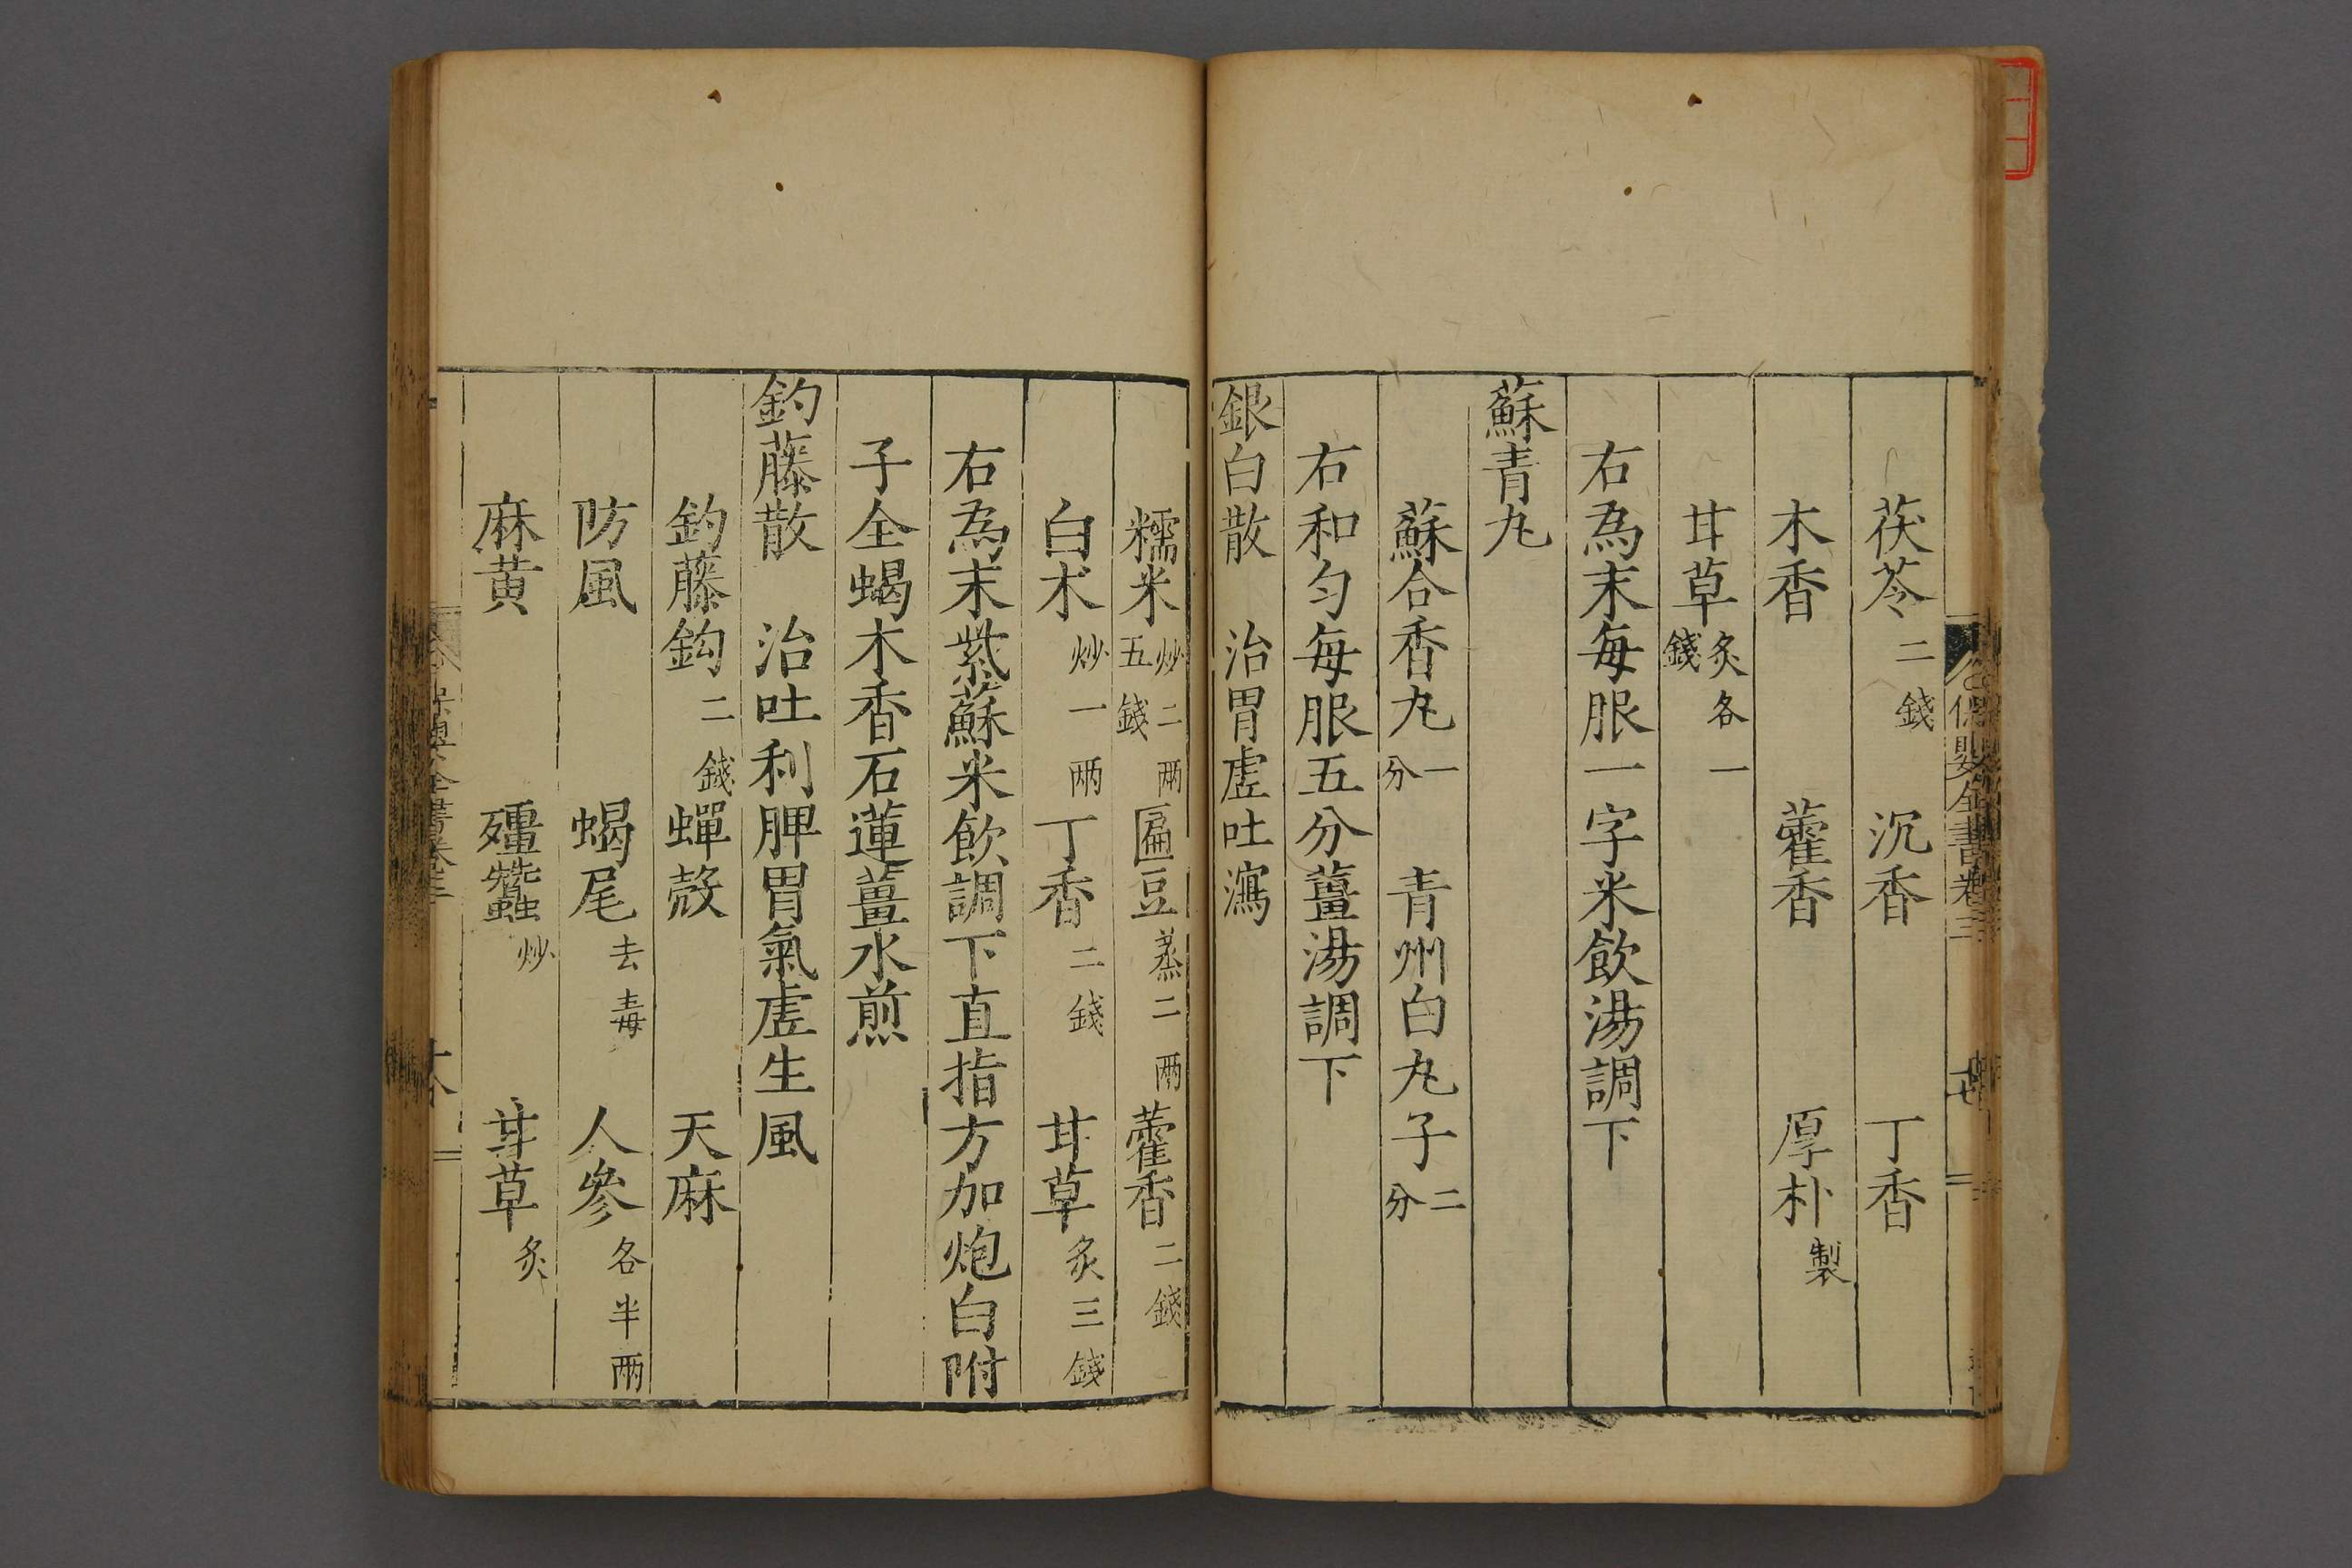 保嬰全書卷三
茯苓二錢 沉香 丁香
木香 藿香 厚朴製
甘草炙各一錢
右為末每服一字米飲湯調下
蘇青丸
蘇合香丸一分 青州白丸子二分
右和勻每服五分薑湯調下
銀白散 治胃虛吐瀉
糯米炒二兩五錢 匾豆蒸二兩 藿香二錢
白朮炒一兩 丁香二錢 甘草炙三錢
右為末紫蘇米飲調下直指方加炮白附
子全蝎木香石蓮薑水煎
釣藤散 治吐利脾胃氣虛生風
釣藤鈎二錢 蟬殻 天麻
防風 蝎尾去毒 人參各半兩
麻黃 殭蠶炒 甘草炙